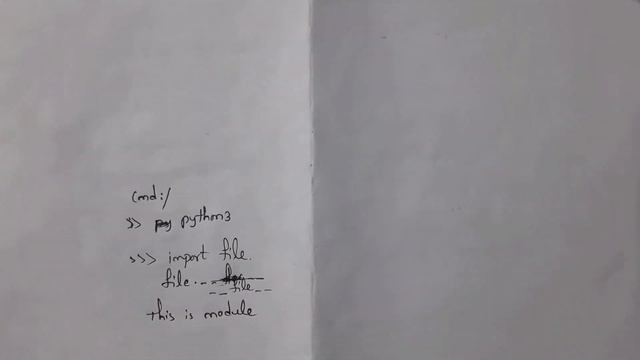 cmd:/
>> python3
>>> import file.
file. __file__
this is module